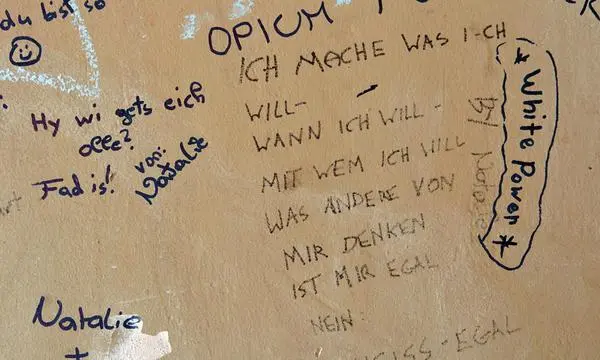 du bist so
OPIUM
ICH MACHE WAS I-CH
WILL-
WANN ICH WILL -
MIT WEM ICH WILL
WAS ANDERE VON
MIR DENKEN
IST MIR EGAL
NEIN:
-EGAL
Hy wi gets eich
olle?
Fad is!
von:
Natalie
* White Power *
By
Natalie
+